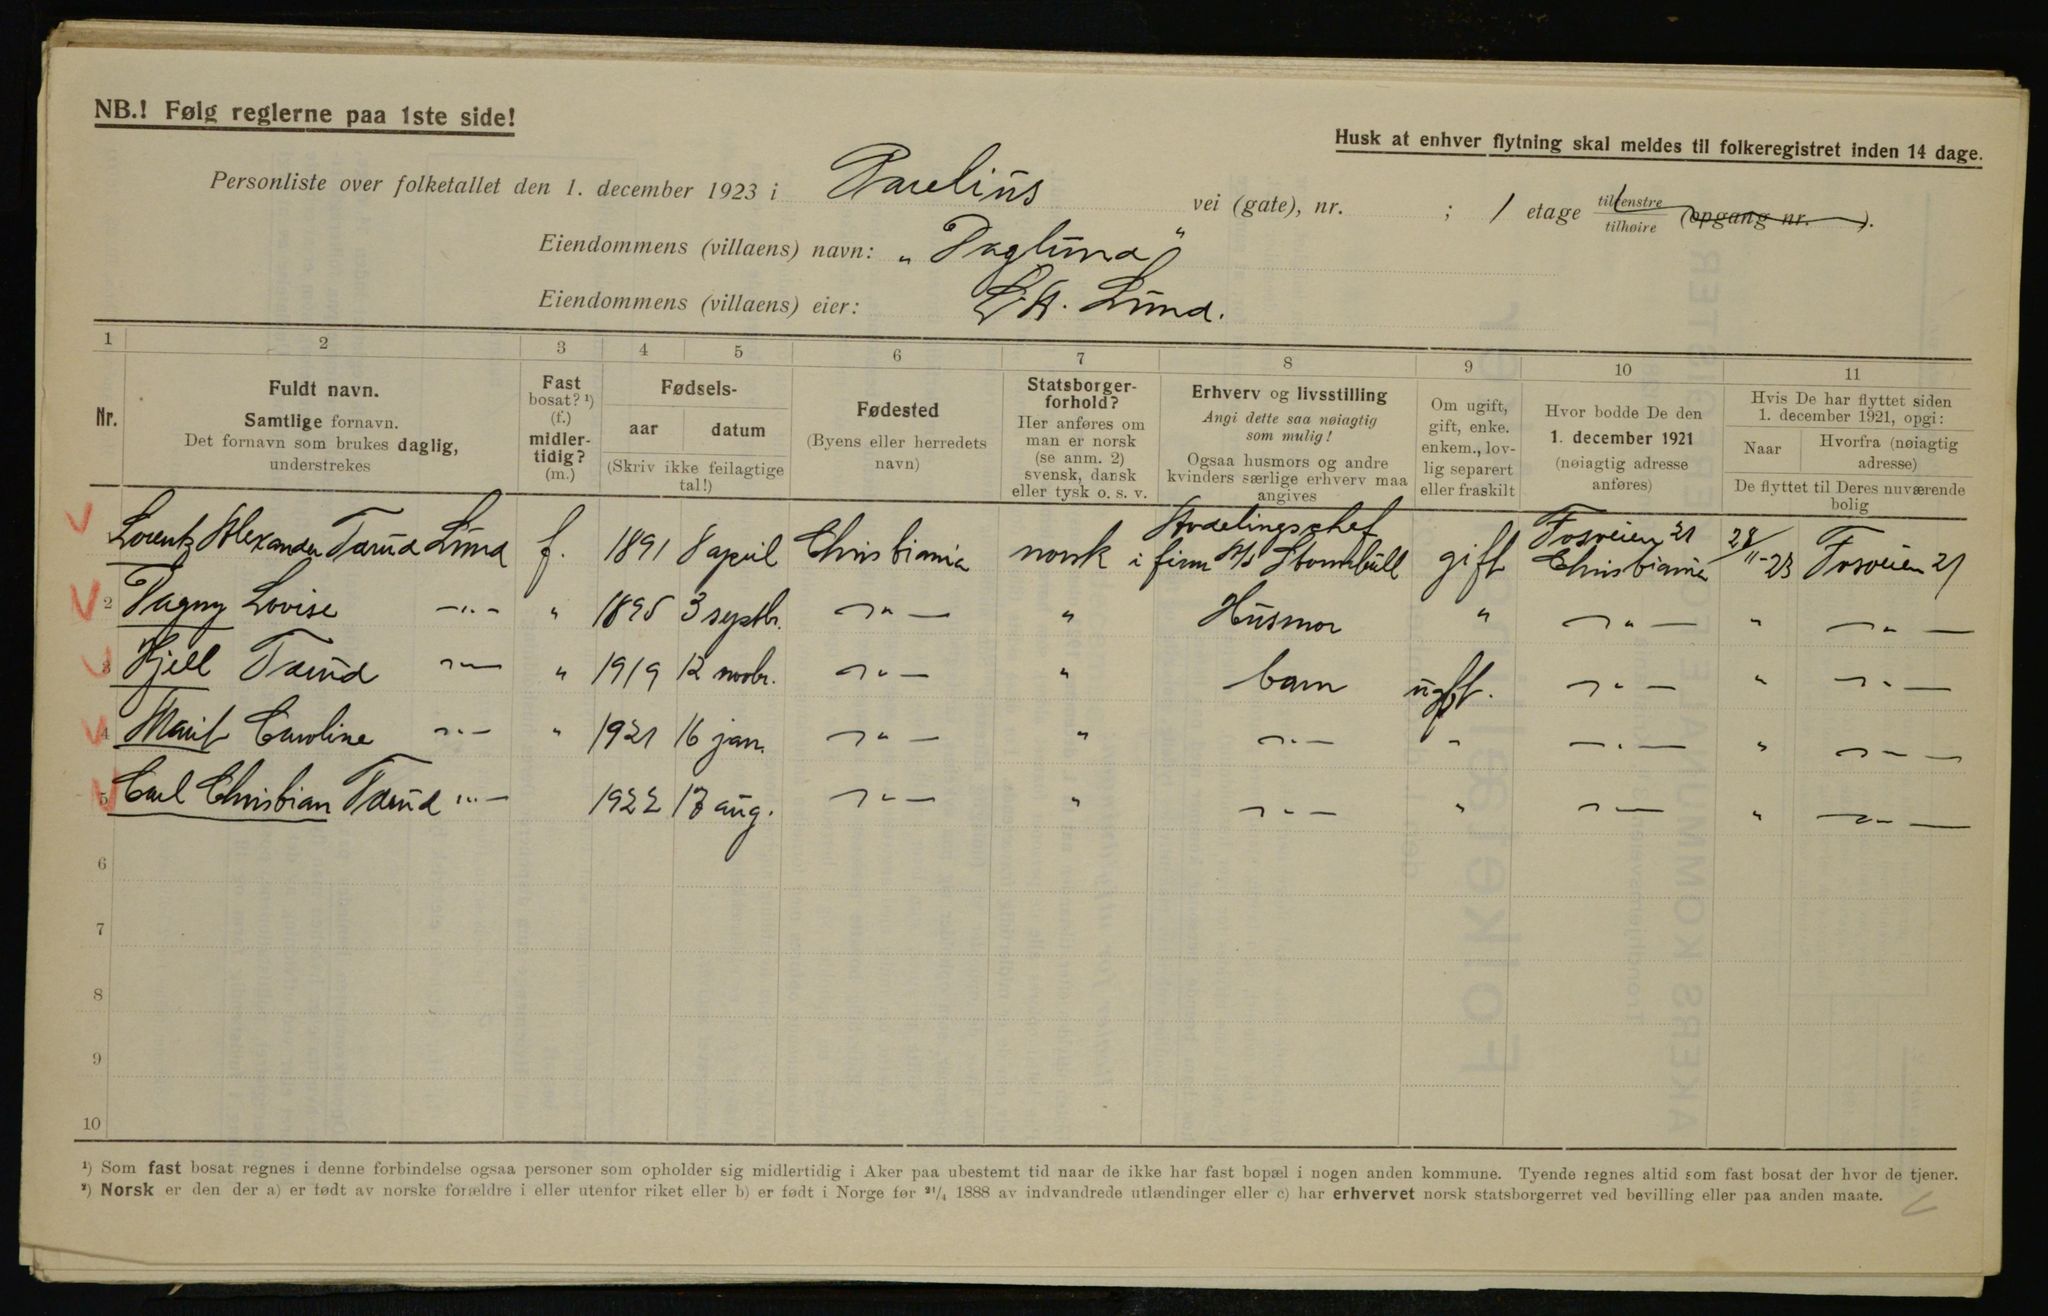 NB.! Følg reglerne paa 1ste side!
Husk at enhver flytning skal meldes til folkeregistret inden 14 dage.
Personliste over folketallet den 1. december 1923 i Parelius vei (gate), nr. ; 1 etage tilvenstre tilhøire (opgang nr. ).
Eiendommens (villaens) navn: „Daglund"
Eiendommens (villaens) eier: L. A. Lund.
1 2 3 4 5 6 7 8 9 10 11
Nr.
Fuldt navn.
Samtlige fornavn.
Det fornavn som brukes daglig,
understrekes
Fast
bosat? ¹)
(f.)
midler-
tidig?
(m.)
Fødsels-
aar datum
(Skriv ikke feilagtige
tal!)
Fødested
(Byens eller herredets
navn)
Statsborger-
forhold?
Her anføres om
man er norsk
(se anm. 2)
svensk, dansk
eller tysk o. s. v.
Erhverv og livsstilling
Angi dette saa nøiagtig
som mulig!
Ogsaa husmors og andre
kvinders særlige erhverv maa
angives
Om ugift,
gift, enke.
enkem., lov-
lig separert
eller fraskilt
Hvor bodde De den
1. december 1921
(nøiagtig adresse
anføres)
Hvis De har flyttet siden
1. december 1921, opgi:
Naar Hvorfra (nøiagtig
adresse)
De flyttet til Deres nuværende
bolig
Lorentz Alexander Tarud Lund f. 1891 8 april Christiania norsk Avdelingschef i firm A/S Stormbull gift Fosveien 21 Christiania 28/11-23 Fosveien 21
2 Dagny Lovise —"— " 1895 3 septbr. —"— " Husmor " —"— " —"—
3 Kjell Tarud —"— " 1919 12 novbr. —"— " barn ugift. —"— " —"—
4 Marit Caroline —"— " 1921 16 jan. —"— " —"— " —"— " —"—
5 Carl Christian Tarud —"— 1922 17 aug. —"— " —"— " —"— " —"—
6
7
8
9
10
¹) Som fast bosat regnes i denne forbindelse ogsaa personer som opholder sig midlertidig i Aker paa ubestemt tid naar de ikke har fast bopæl i nogen anden kommune. Tyende regnes altid som fast bosat der hvor de tjener.
²) Norsk er den der a) er født av norske forældre i eller utenfor riket eller b) er født i Norge før ²¹/₄ 1888 av indvandrede utlændinger eller c) har erhvervet norsk statsborgerret ved bevilling eller paa anden maate.